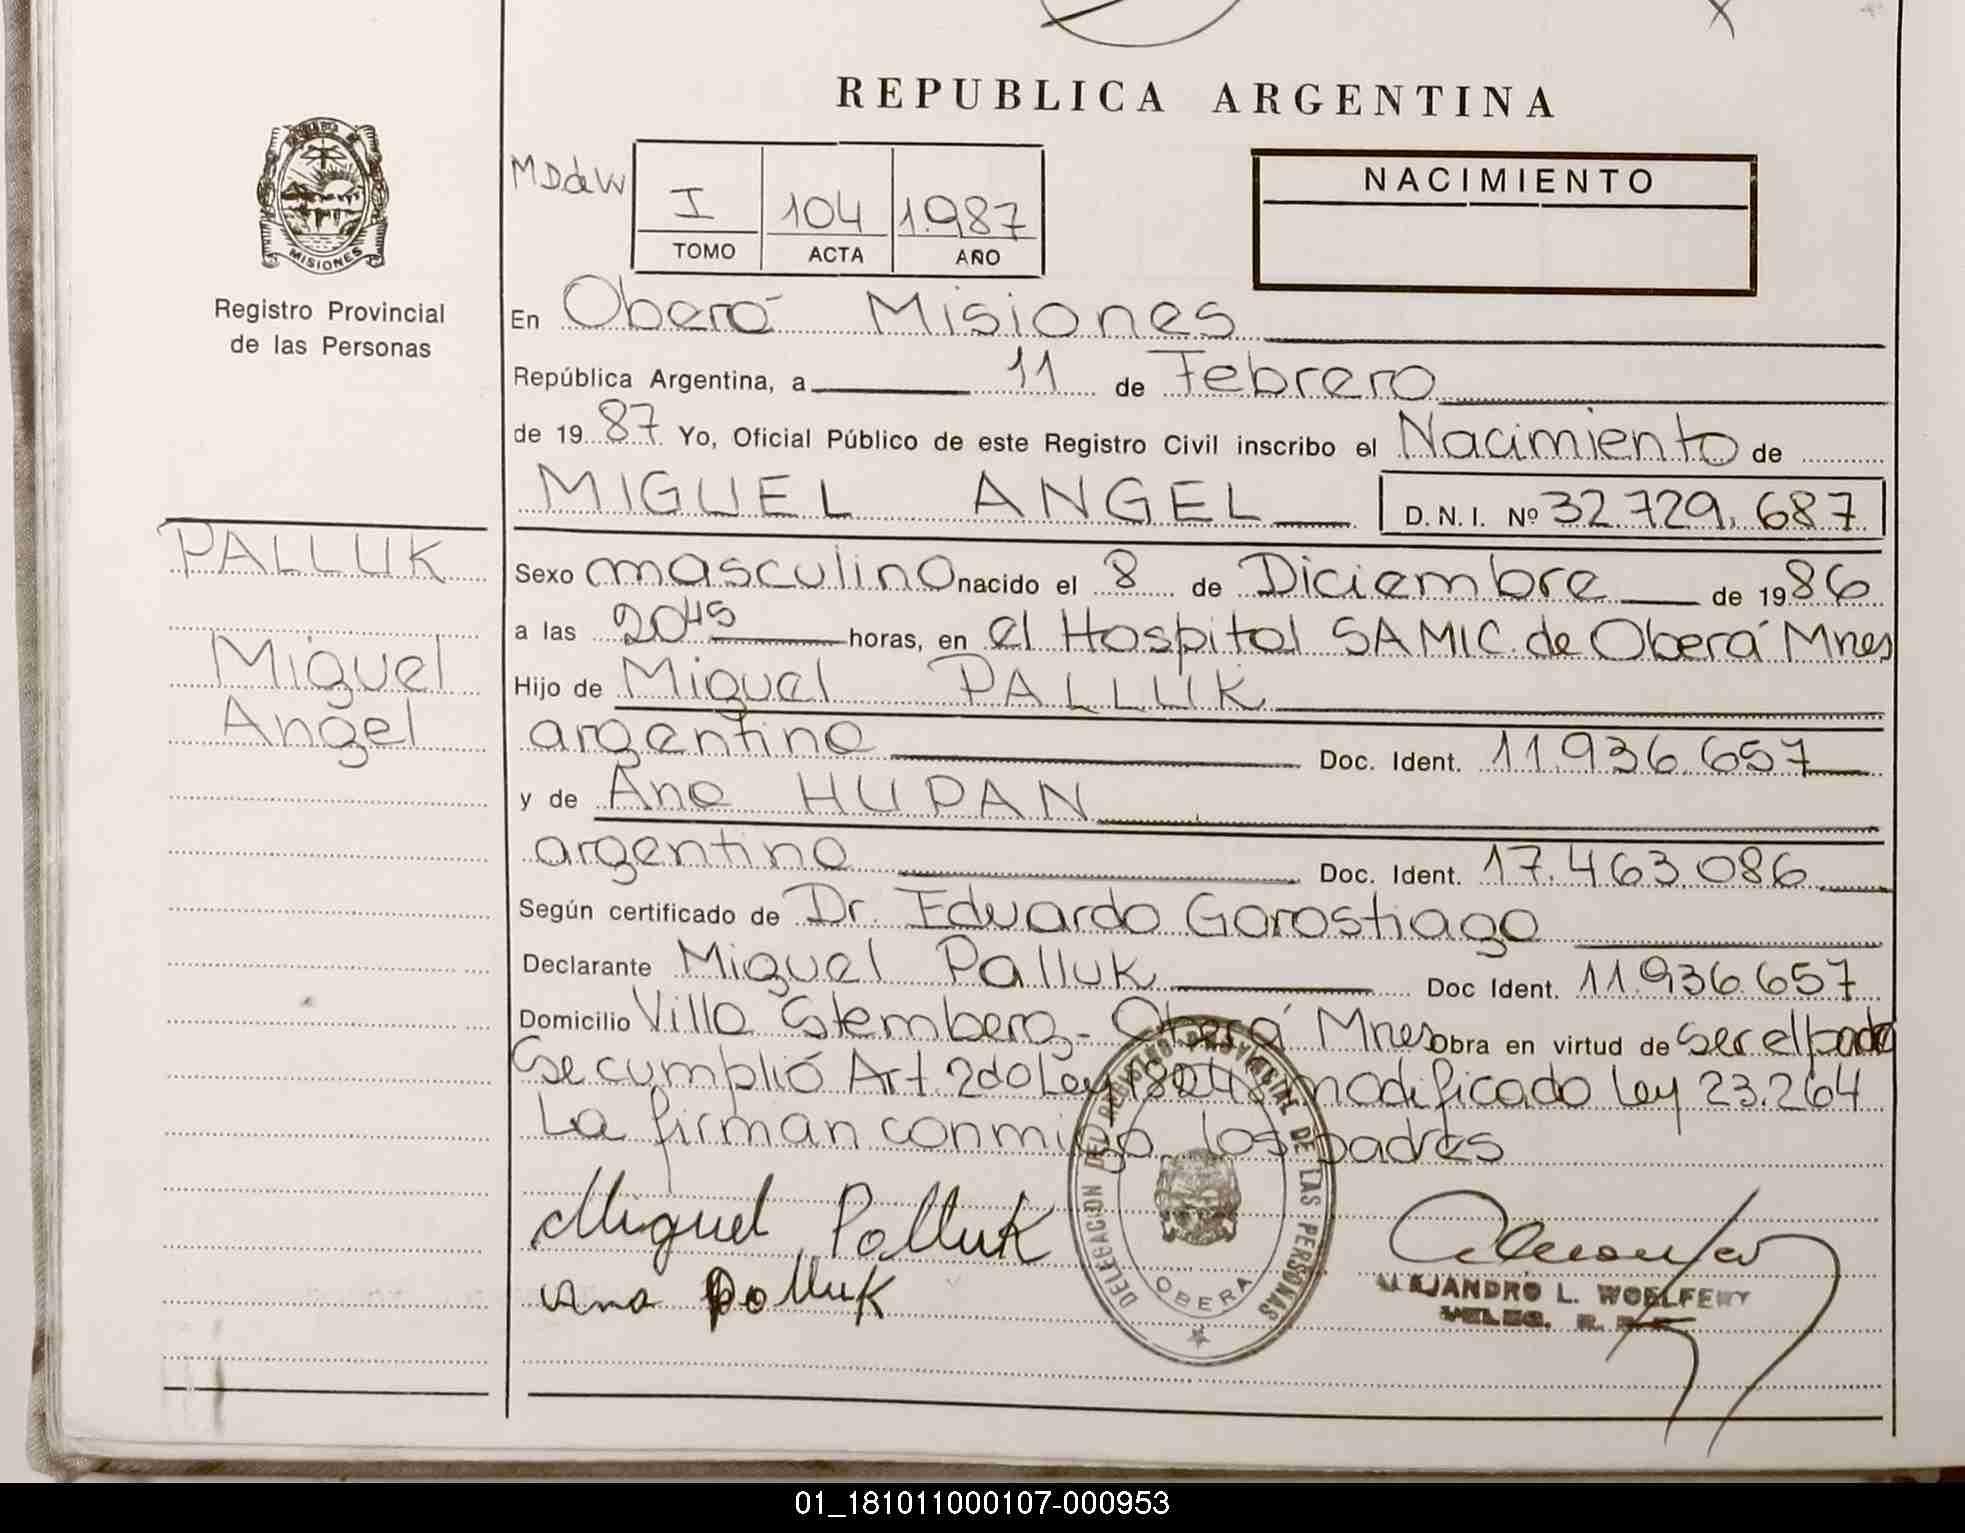 REPUBLICA ARGENTINA
MISIONES
Registro Provincial
de las Personas
MDdW
I 104 1.987
TOMO ACTA AÑO
NACIMIENTO
En Oberá Misiones
República Argentina, a 11 de Febrero
de 19 87 Yo, Oficial Público de este Registro Civil inscribo el Nacimiento de
MIGUEL ANGEL D.N.I. Nº 32.729.687
PALLUK
Miguel
Angel
Sexo masculino nacido el 8 de Diciembre de 19 86
a las 20 45 horas, en el Hospital SAMIC. de Oberá Mnes
Hijo de Miguel PALLUK
argentino Doc. Ident. 11.936.657
y de Ana HUPAN
argentina Doc. Ident. 17.463.086
Según certificado de Dr. Eduardo Gorostiago
Declarante Miguel Palluk Doc Ident. 11.936.657
Domicilio Villa Stemberg - Oberá Mnes Obra en virtud de ser el padre
Se cumplió Art. 2do Ley 18248 modificado Ley 23.264
La firman conmigo los padres
Miguel Palluk
Ana Palluk
DELEGACION DEL REGISTRO PROVINCIAL DE LAS PERSONAS
OBERA
ALEJANDRO L.
DELEG.
01_181011000107-000953